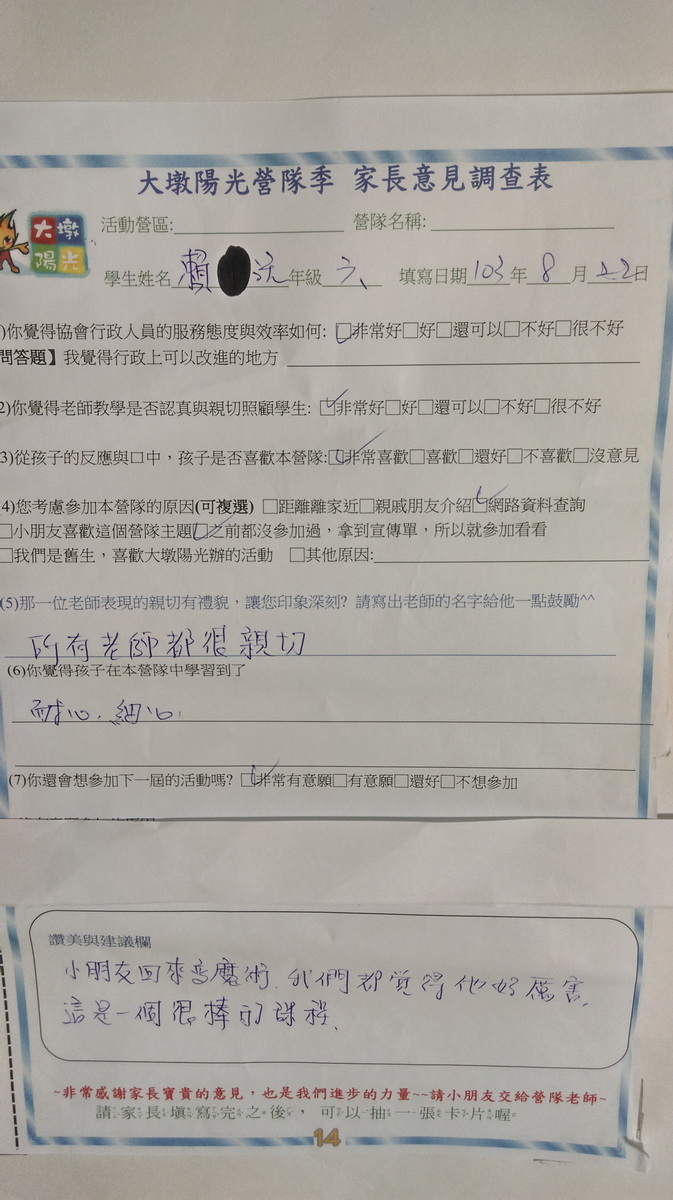 大墩陽光營隊季 家長意見調查表
大墩
陽光
活動營區: 營隊名稱:
學生姓名 賴 沅 年級 六、 填寫日期 103 年 8 月 22 日
)你覺得協會行政人員的服務態度與效率如何: ☑非常好□好□還可以□不好□很不好
問答題】我覺得行政上可以改進的地方
2)你覺得老師教學是否認真與親切照顧學生: ☑非常好□好□還可以□不好□很不好
3)從孩子的反應與口中，孩子是否喜歡本營隊:☑非常喜歡□喜歡□還好□不喜歡□沒意見
(4)您考慮參加本營隊的原因(可複選) □距離離家近□親戚朋友介紹☑網路資料查詢
□小朋友喜歡這個營隊主題☑之前都沒參加過，拿到宣傳單，所以就參加看看
□我們是舊生，喜歡大墩陽光辦的活動 □其他原因:
(5)那一位老師表現的親切有禮貌，讓您印象深刻? 請寫出老師的名字給他一點鼓勵^^
所有老師都很親切
(6)你覺得孩子在本營隊中學習到了
耐心、細心.
(7)你還會想參加下一屆的活動嗎? ☑非常有意願□有意願□還好□不想參加
讚美與建議欄
小朋友回來變魔術、我們都覺得他好厲害.
這是一個很棒的課程、
~非常感謝家長寶貴的意見，也是我們進步的力量~~請小朋友交給營隊老師~
請家長填寫完之後，可以抽一張卡片喔
14